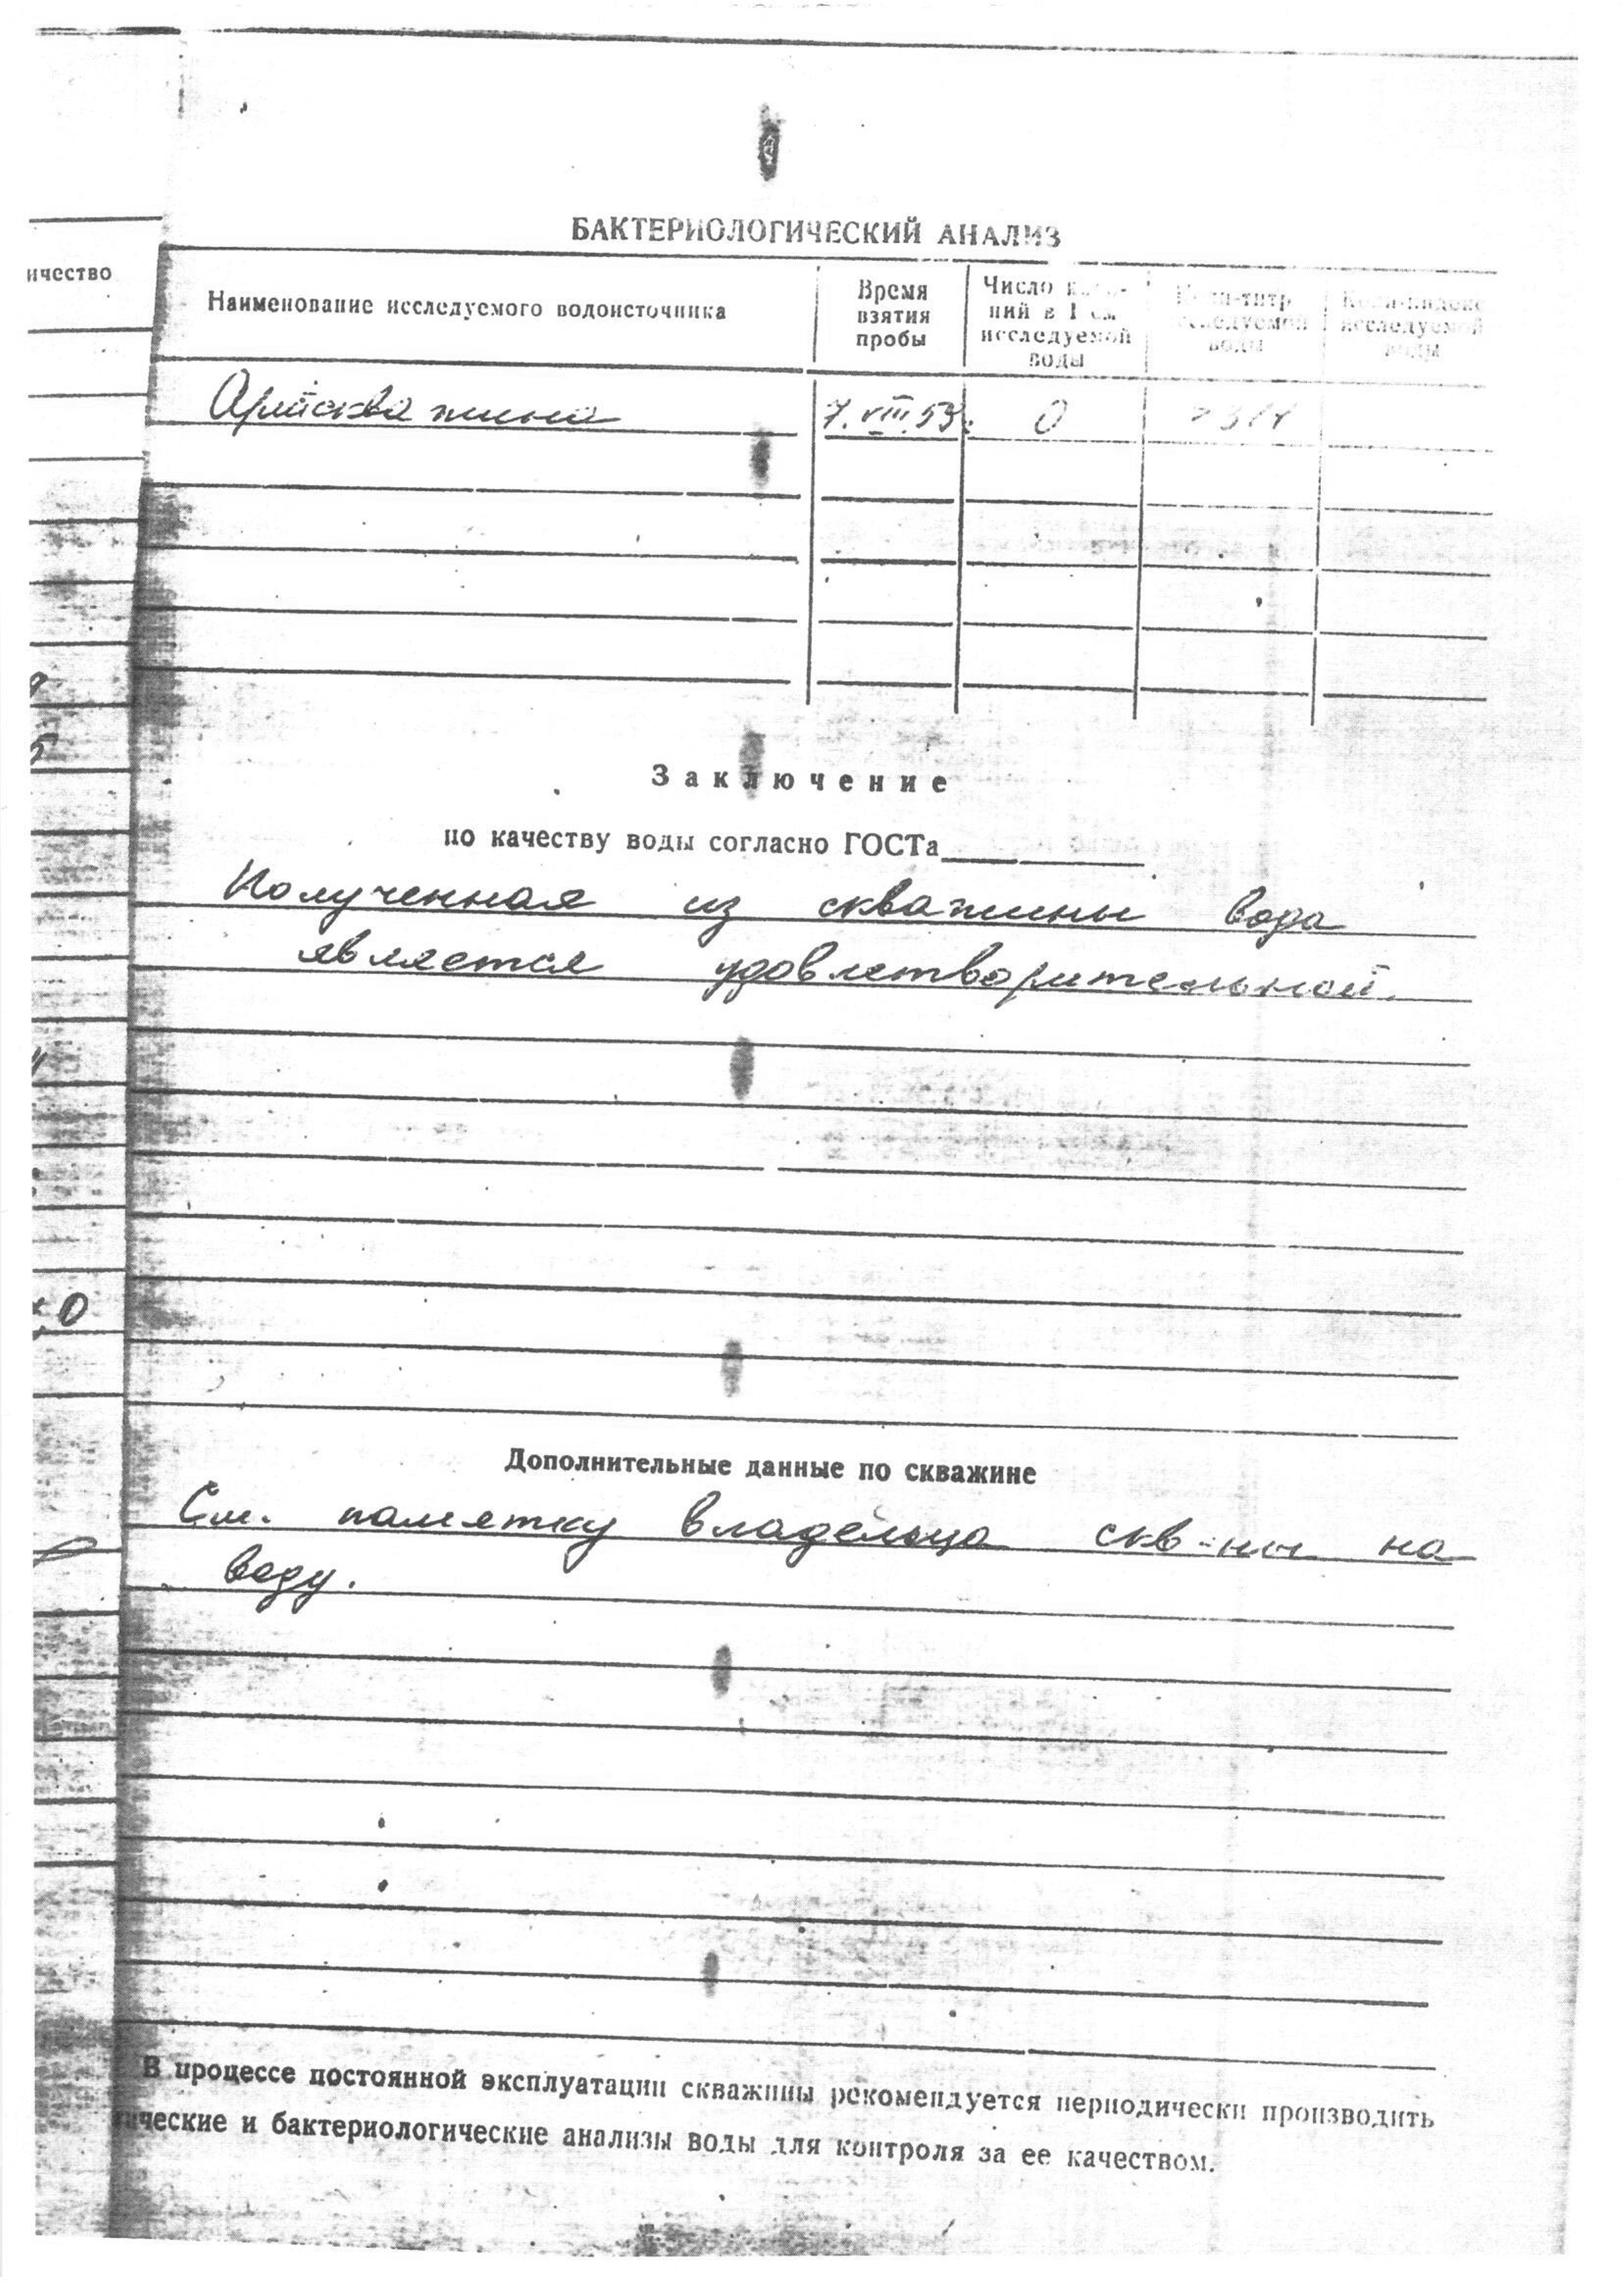 БАКТЕРИОЛОГИЧЕСКИЙ АНАЛИЗ
ичество
Наименование исследуемого водоисточника
Время взятия пробы
Число коло-
ний в 1 см
исследуемой
воды
Коли-титр
исследуемой
воды
Коли-индекс
исследуемой
воды
Артскважина
7.VIII.53
0
Заключение
по качеству воды согласно ГОСТа
Полученная из скважины вода
является удовлетворительной.
0
Дополнительные данные по скважине
См. памятку владельца скв-ны на
воду.
В процессе постоянной эксплуатации скважины рекомендуется периодически производить
ические и бактериологические анализы воды для контроля за ее качеством.